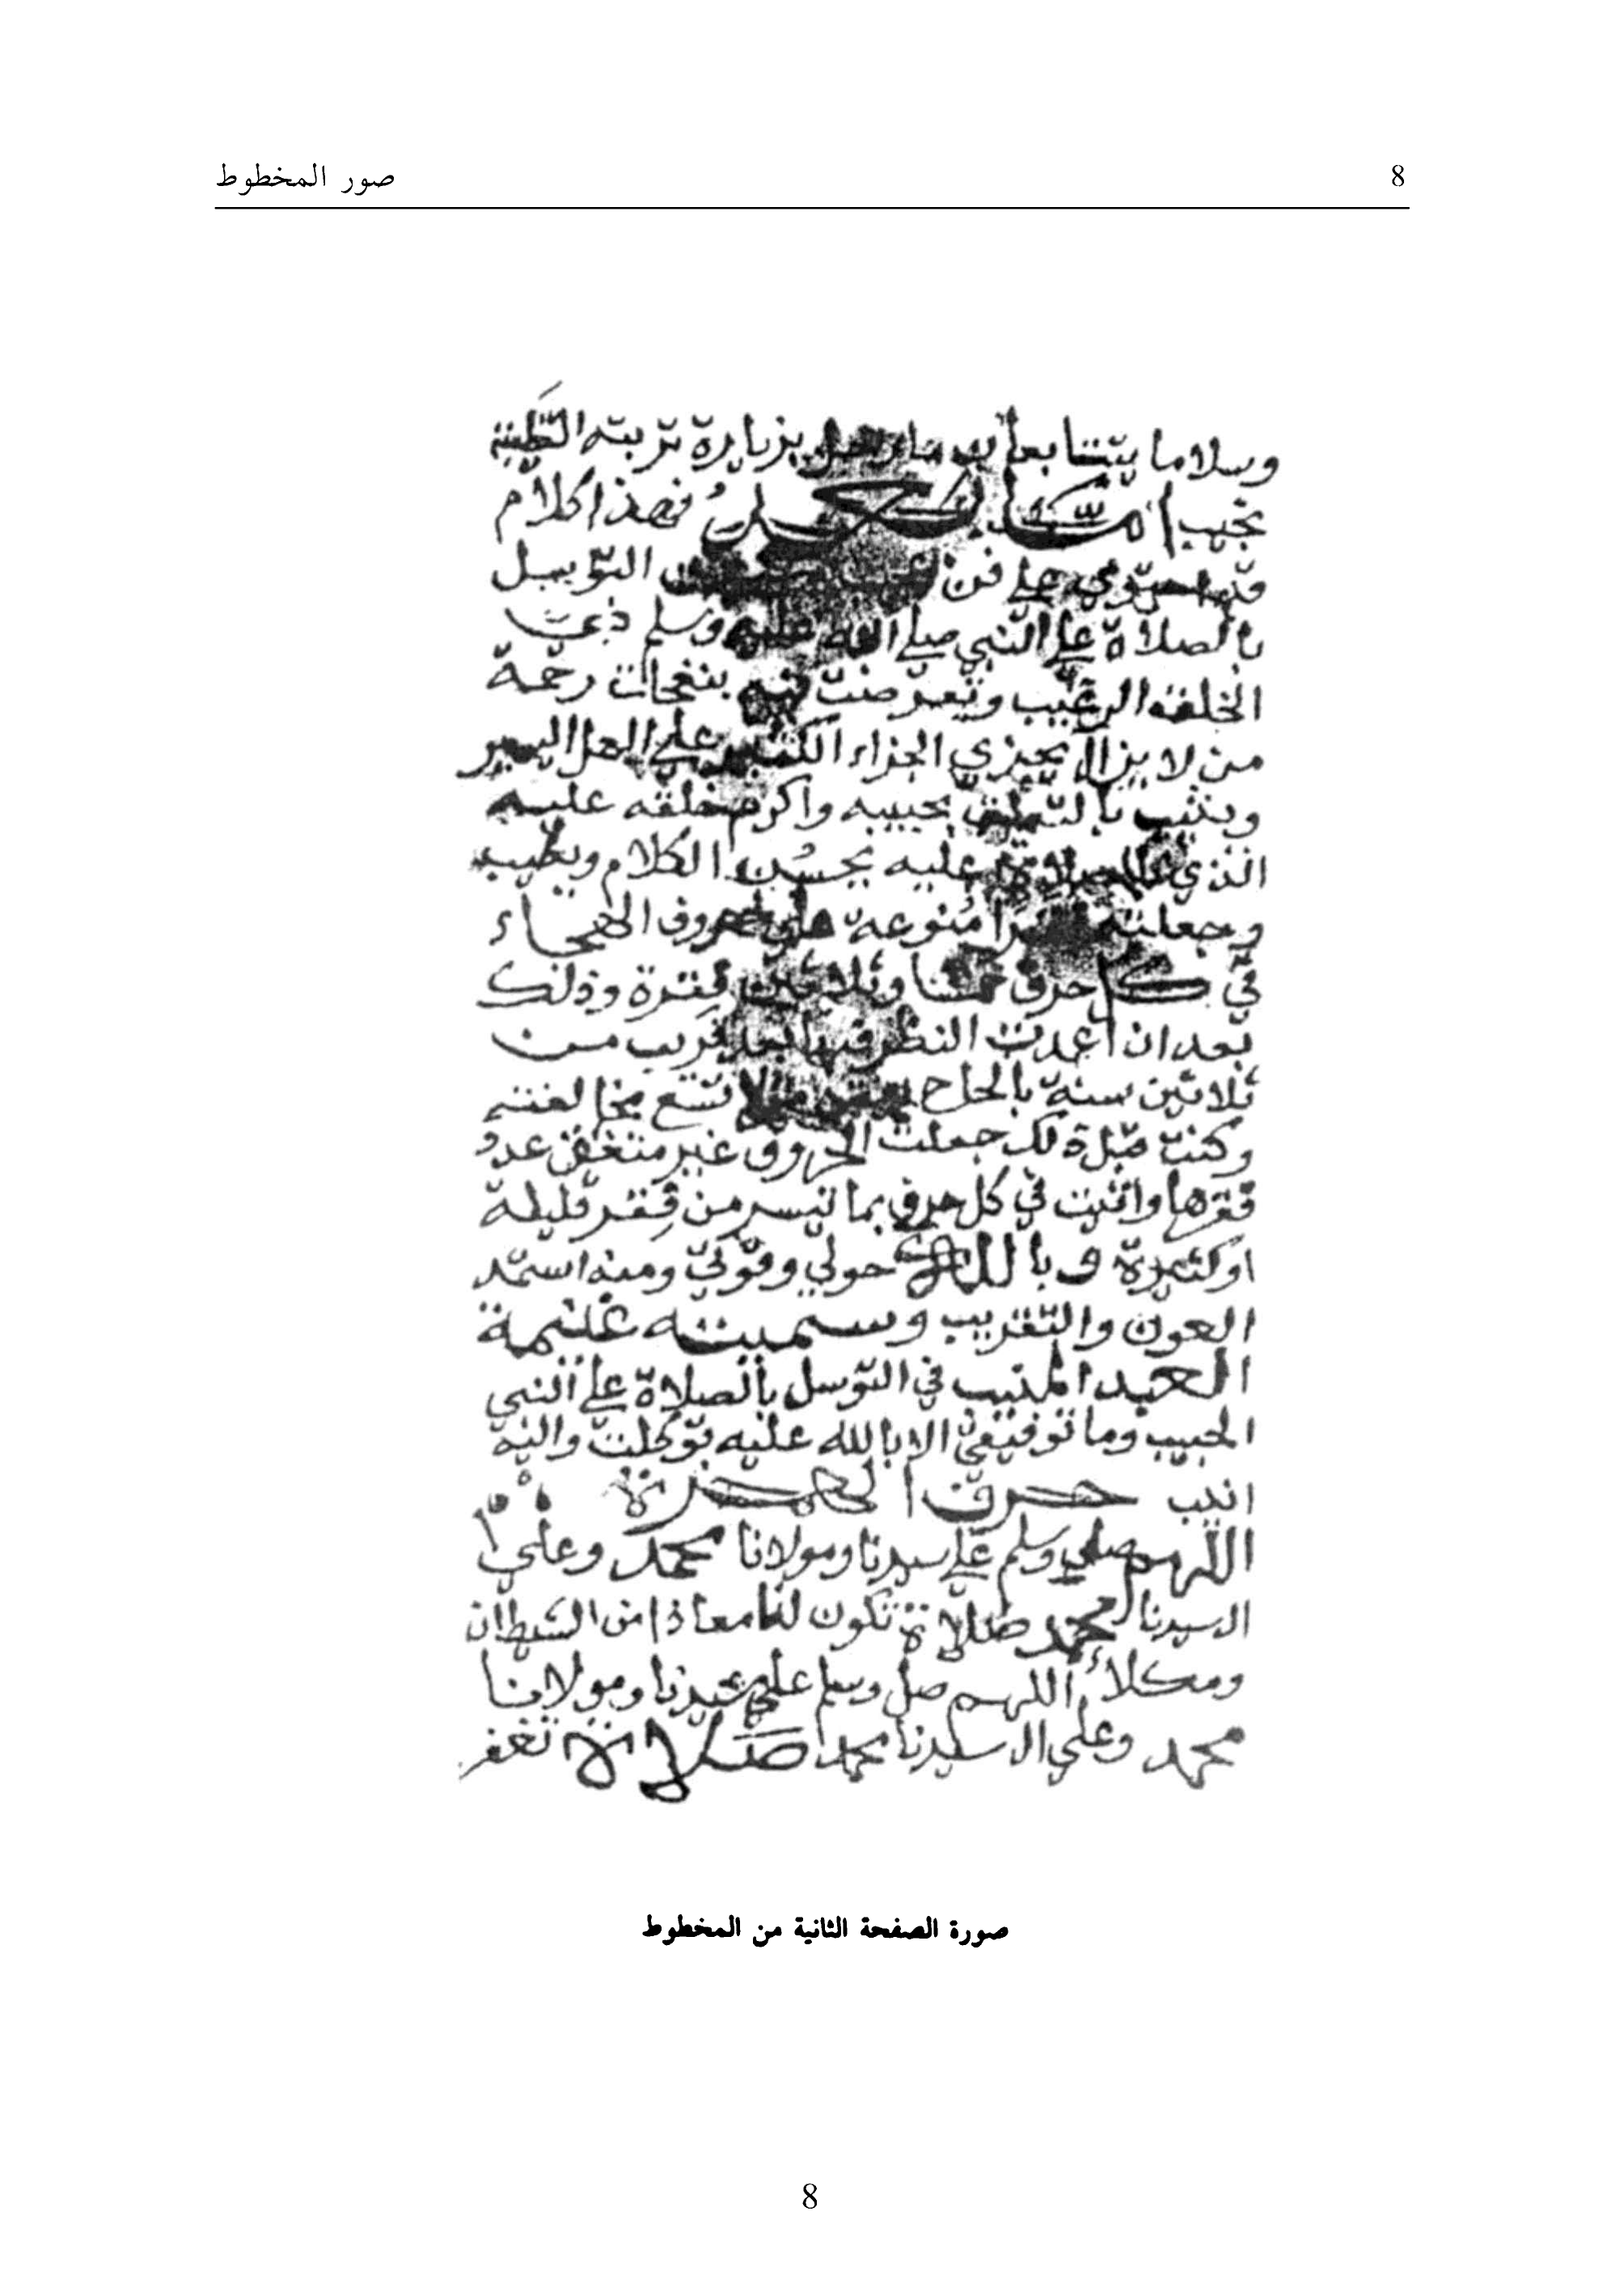 8
صور المخطوط
وسلاما يتتابعان بزيارة تربته الطيبة
نجيب اما بعد فهذا كلام
على فن التوسل
بالصلاة على النبي صلى الله عليه وسلم ذى
الخلق الرغيب وتعرضت فيه بنفحات رحمة
من لا يزال يجزي الجزاء الكثير على العمل اليسير
ويثيب بحبيبه واكرم خلقه عليه
الذي عليه بحسن الكلام ويطيب
وجعلته منوعة على حروف الهجاء
في كل حرف خمسا وثلاثين فقرة وذلك
بعد ان اعدت النظر فيها بعد قريب من
ثلاثين سنة بالحاح لا تسع مخالفته
وكنت جعلت الحروف غير متفق عدد
فقرها واتيت في كل حرف بما تيسر من فقر قليلة
او كثيرة وبالله حولي وقوتي ومنه استمد
العون والتقريب وسميته غنيمة
العبد المنيب في التوسل بالصلاة على النبي
الحبيب وما توفيقي الا بالله عليه توكلت واليه
انيب حرف الهمزة
اللهم صلي وسلم على سيدنا ومولانا محمد وعلى
ال سيدنا محمد صلاة تكون لنا معاذا من الشيطان
ومكلأ اللهم صل وسلم على سيدنا ومولانا
محمد وعلى ال سيدنا محمد صلاة تغفر
صورة الصفحة الثانية من المخطوط
8